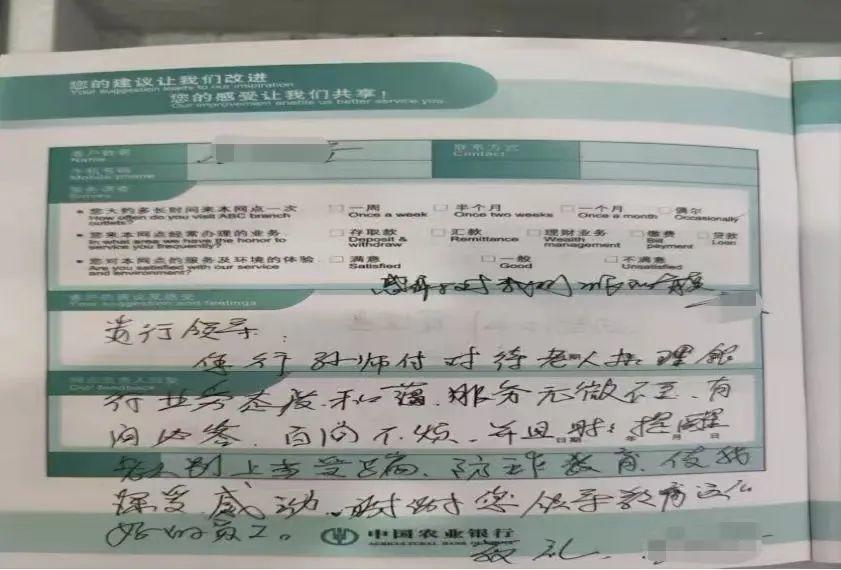 您的建议让我们改进
Your suggestion leads to our inspiration
您的感受让我们共享!
Our improvement enable us better service you.
客户姓名
Name
联系方式
Contact
手机号码
Mobile phone
服务调查
Survey
您大约多长时间来本网点一次 □一周 □半个月 □一个月 □偶尔
How often do you visit ABC branch outlets? Once a week Once two weeks Once a month Occasionally
您来本网点经常办理的业务 □存取款 □汇款 □理财业务 □缴费 □贷款
In what area we have the honor to service you frequently? Deposit & withdraw Remittance Wealth management Bill payment Loan
您对本网点的服务及环境的体验 □满意 □一般 □不满意
Are you satisfied with our service and environment? Satisfied Good Unsatisfied
客户的建议及感受
Your suggestion and feelings
贵行领导:
你行孙师付对待老人办理银
网点负责人回复
Our feedback
行业务态度和蔼,服务无微不至,有
问必答,百问不烦,并且时时提醒
日期 年 月 日
老人别上当受骗,防诈教育,使我
深受感动,谢谢您领导教育这么
好的员工。
中国农业银行
AGRICULTURAL BANK OF CHINA
敬礼